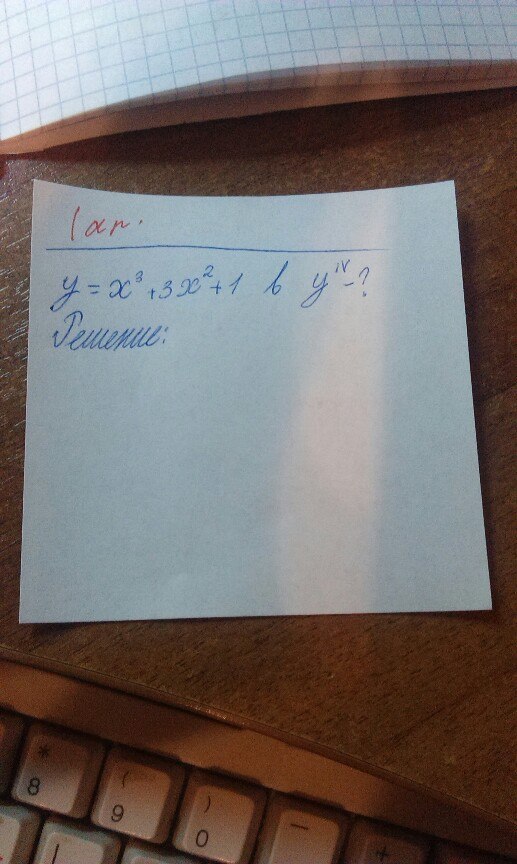 y = x³ + 3x² + 1 в yᴵⱽ - ?
Решение:
* 8
( 9
) 0